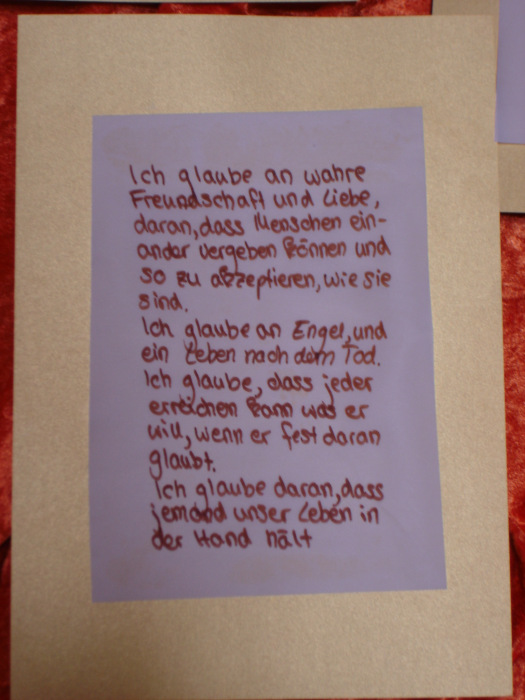 Ich glaube an wahre
Freundschaft und Liebe,
daran, dass Menschen ein-
ander vergeben können und
so zu akzeptieren, wie sie
sind.
Ich glaube an Engel, und
ein Leben nach dem Tod.
Ich glaube, dass jeder
erreichen kann was er
will, wenn er fest daran
glaubt.
Ich glaube daran, dass
jemand unser Leben in
der Hand hält